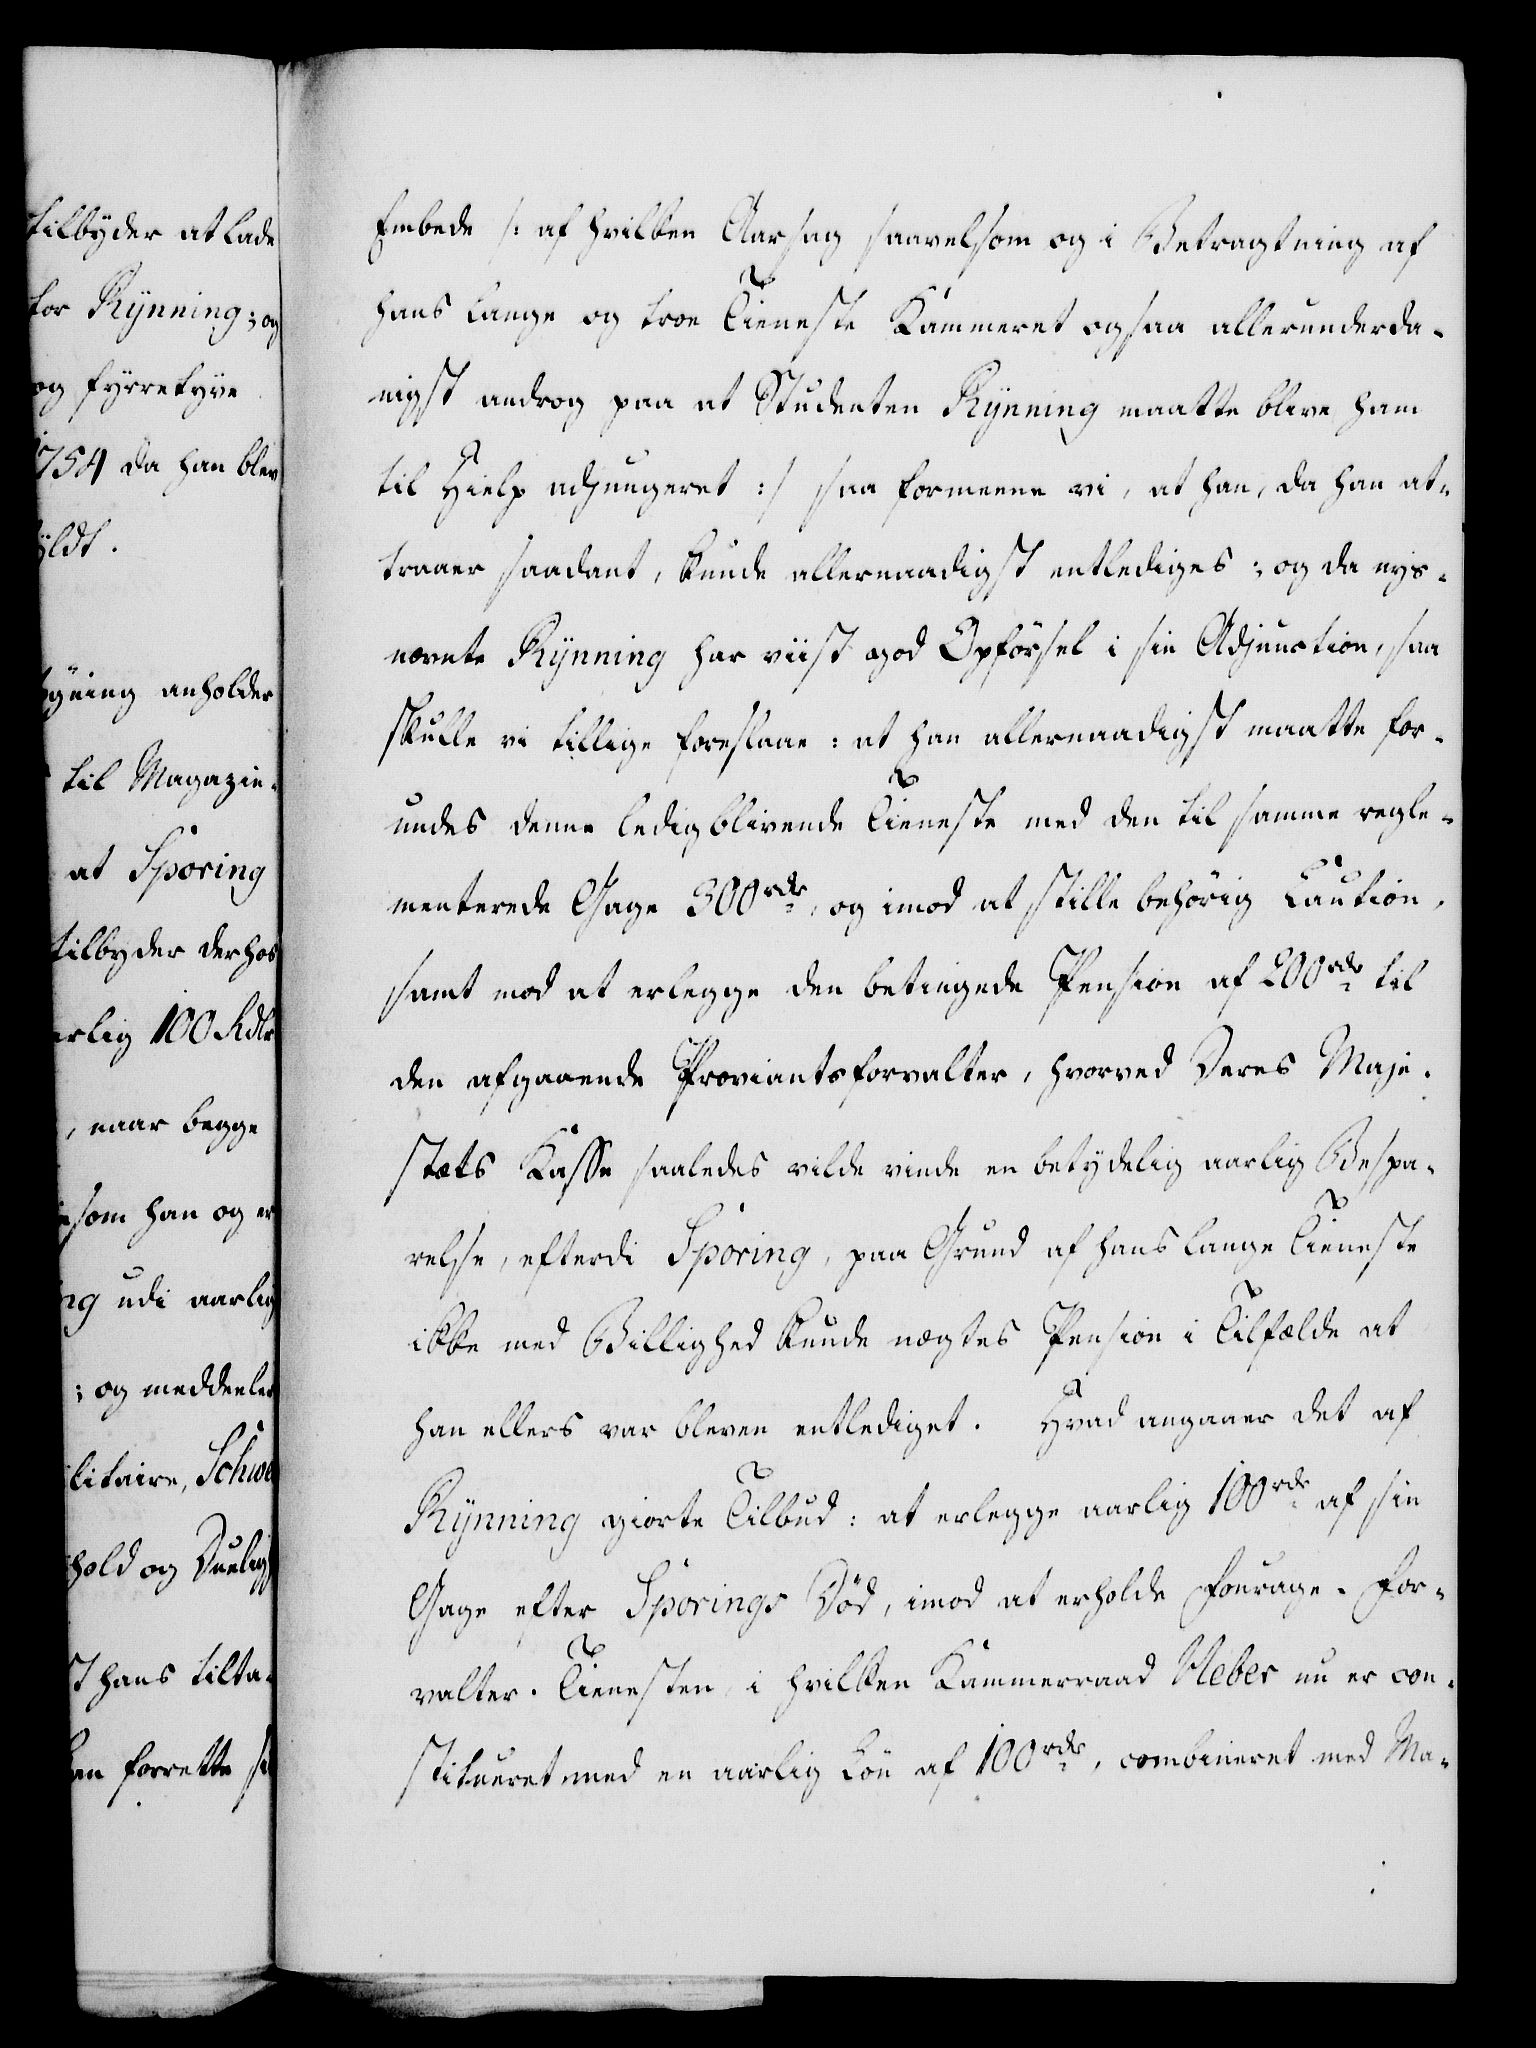 tilbyder at lade
tor Rÿnning; og
og fyrretyve
1754 da han blev
yldt.
gning anholder
til Magazin-
at Sporing
tilbyder derhos
arlig 100 Rdlr
, naar begge
som han og er
ng udi aarlig
; og meddeeler
litaire, Schwe
hold og Duelig
st hans tilta-
en forrette si
Embede /: af hvilken Aarsag saavelsom og i Betragtning af
hans lange og troe Tieneste Kammeret ogsaa allerunderda-
nigst androg paa at Studenten Rÿnning maatte blive ham
til Hielp adjungeret :/ saa formeene vi, at han, da han at-
traaer saadant, kunde allernaadigst entlediges; og da nys-
nævnte Rÿnning har viist god Opförsel i sin Adjunction, saa
skulle vi tillige foreslaae: at han allernaadigst maatte for-
undes denne ledigblivende Tieneste med den til samme regle-
menterede Gage 300 rdr, og imod at stille behörig Caution,
samt mod at erlegge den betingede Pension af 200 rdr til
den afgaaende Proviantsforvalter, hvorved Deres Maje-
stæts Kasse saaledes vilde vinde en betydelig aarlig Bespa-
relse, efterdi Sporing, paa Grund af hans lange Tieneste
ikke med Billighed kunde nægtes Pension i Tilfælde at
han ellers var bleven entlediget. Hvad angaaer det af
Rÿnning giorte Tilbud: at erlegge aarlig 100 rdr af sin
Gage efter Sporings Död, imod at erholde Fourage-For-
valter-Tienesten, i hvilken Kammerraad Kleber nu er con-
stitueret med en aarlig Lön af 100 rdr, combineret med Ma-